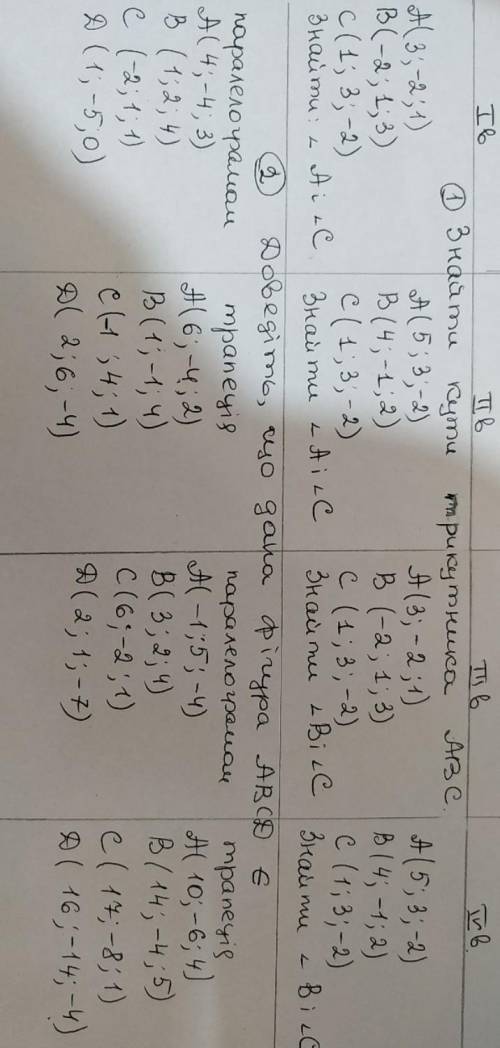 Iв IIв IIIв IVв
① Знайти кути трикутника ABC.
A(3; -2; 1)
B(-2; 1; 3)
C(1; 3; -2)
Знайти: ∠ A i ∠C.
A(5; 3; -2)
B(4; -1; 2)
C(1; 3; -2)
Знайти ∠ A i ∠C
A(3; -2; 1)
B(-2; 1; 3)
C(1; 3; -2)
Знайти ∠B i ∠C
A(5; 3; -2)
B(4; -1; 2)
C(1; 3; -2)
Знайти ∠ B i ∠C
② Доведіть, що дана фігура ABCD є
паралелограмом
A(4; -4; 3)
B(1; 2; 4)
C(-2; 1; 1)
D(1; -5; 0)
трапеція
A(6; -4; 2)
B(1; -1; 4)
C(-1; 4; 1)
D(2; 6; -4)
паралелограмом
A(-1; 5; -4)
B(3; 2; 4)
C(6; -2; 1)
D(2; 1; -7)
трапеція
A(10; -6; 4)
B(14; -4; 5)
C(17; -8; 1)
D(16; -14; -4)